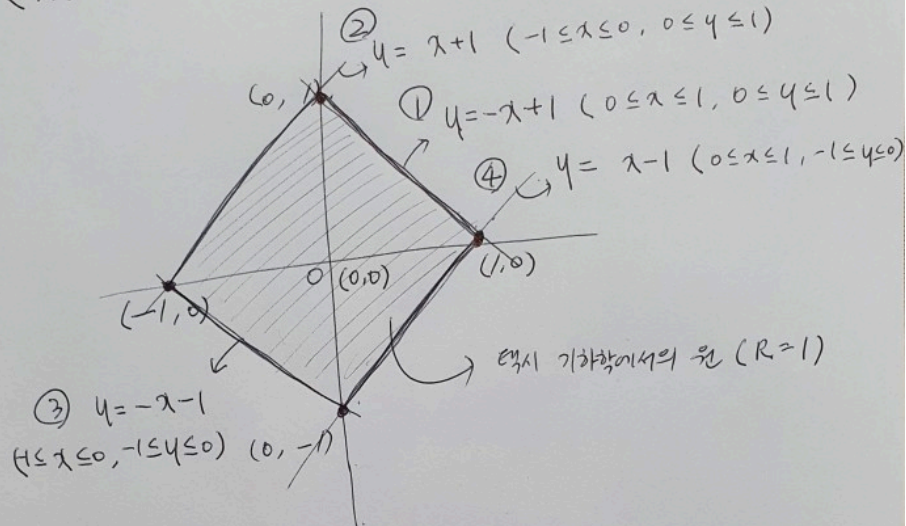 ②
y = x+1 (-1≤x≤0, 0≤y≤1)
(0, 1)
① y=-x+1 (0≤x≤1, 0≤y≤1)
④ y= x-1 (0≤x≤1, -1≤y≤0)
O (0,0)
(1,0)
(-1,0)
택시 기하학에서의 원 (R=1)
③ y=-x-1
(-1≤x≤0, -1≤y≤0) (0, -1)